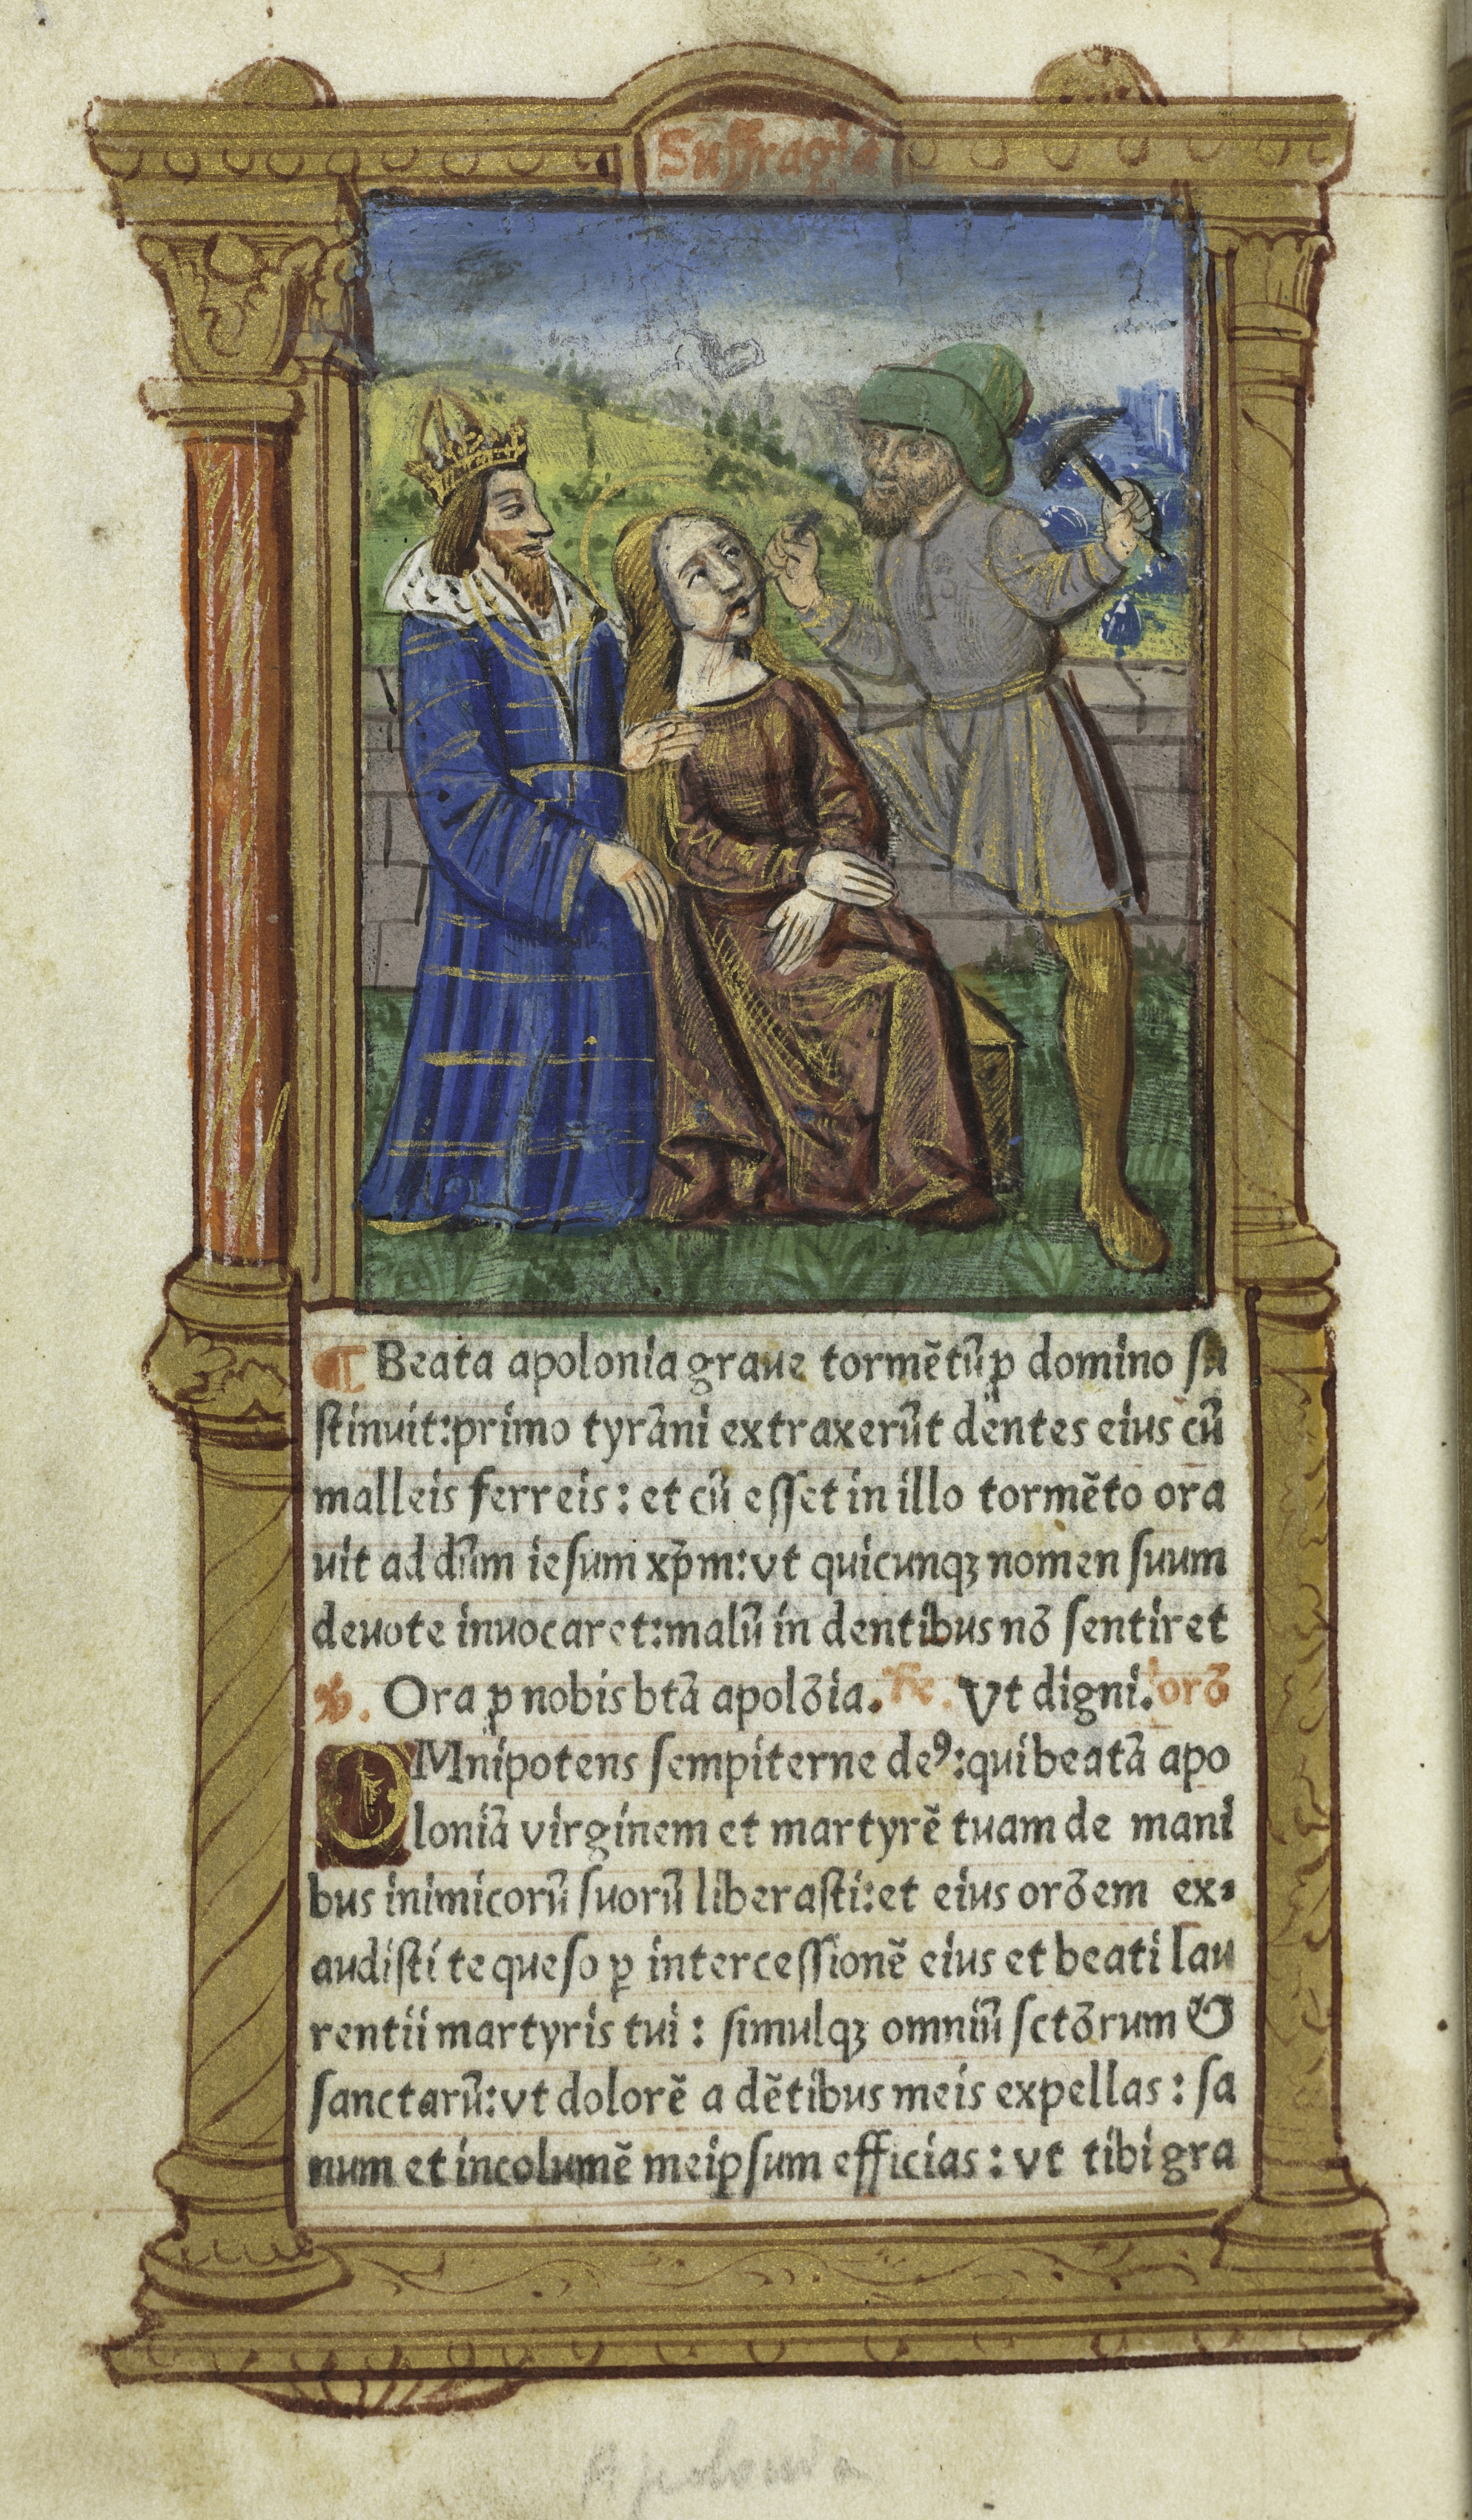 Suffragia
¶ Beata apolonia graue tormētū ꝓ domino ſu
ſtinuit:primo tyrāni extraxerūt dentes eius cū
malleis ferreis: et cū eſſet in illo tormēto ora
uit ad dn̄m ieſum xp̄m:vt quicunqꝫ nomen ſuum
deuote inuocaret:malū in dentibus nō ſentiret
℣. Ora ꝓ nobis btā apolōia. ℟. Vt digni. orō
OMnipotens ſempiterne deꝰ:qui beatā apo
loniā virginem et martyrē tuam de mani
bus inimicorū ſuorū liberaſti:et eius orōem ex⸗
audiſti te queſo ꝑ interceſſionē eius et beati lau
rentii martyris tui: ſimulqꝫ omniū ſctōrum &
ſanctarū:vt dolorē a dētibus meis expellas: ſa
num et incolumē meipſum efficias: vt tibi gra
Apolonia